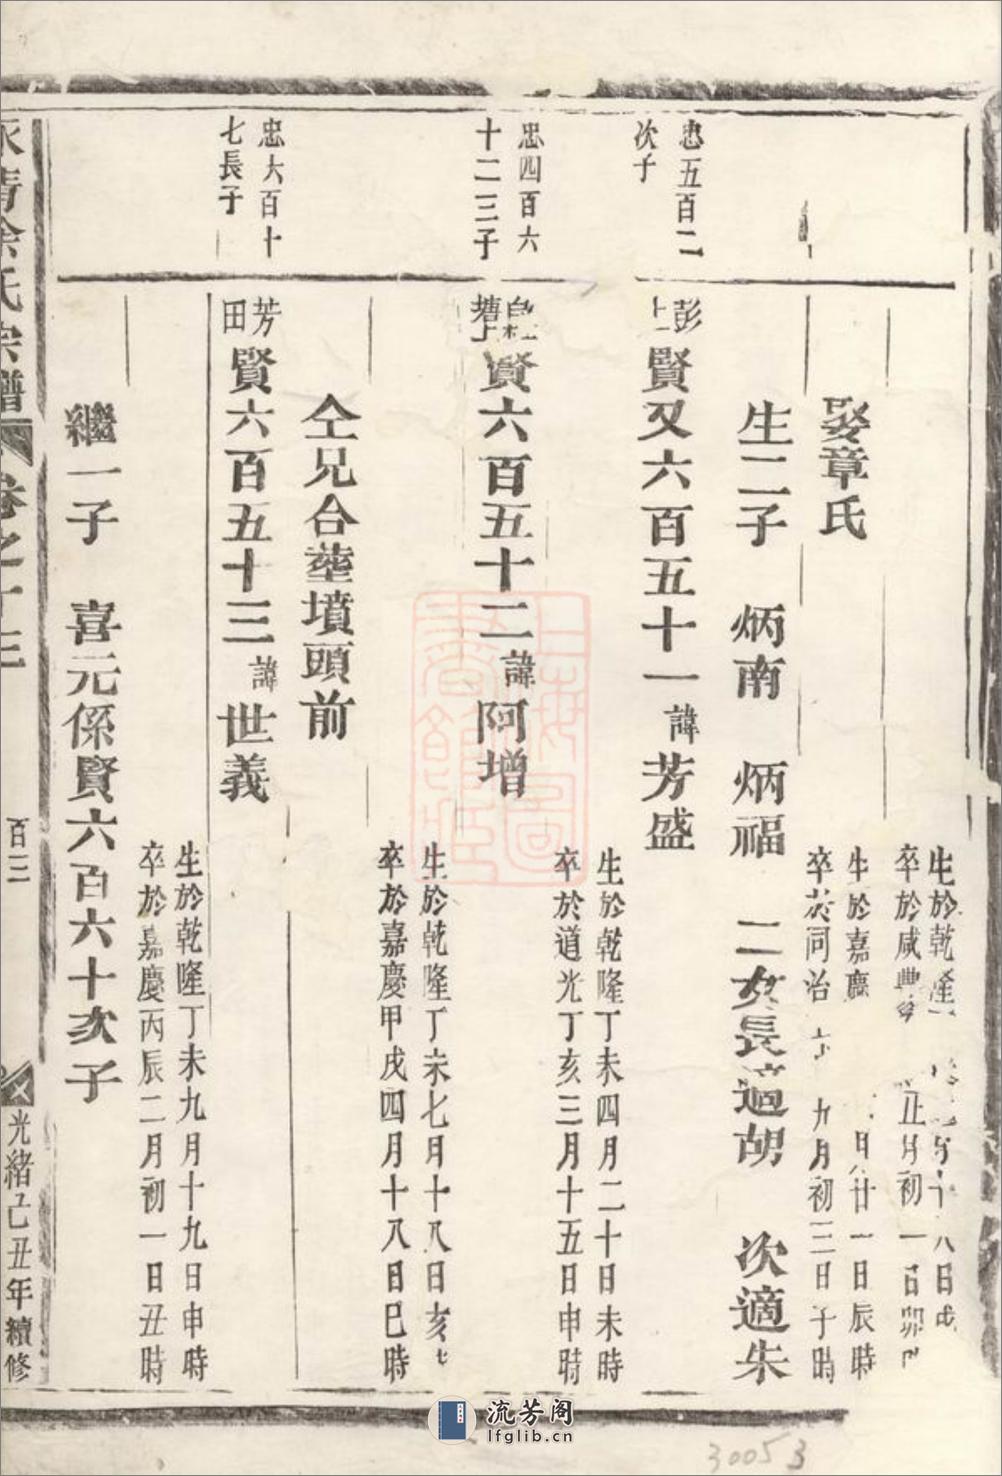 生於乾隆 月十八日戌
卒於咸豐 正月初一日卯
娶章氏
生於嘉慶 月廿一日辰時
卒於同治 六 九月初三日子時
生二子 炳南 炳福 二女長適胡 次適朱
忠五百二
次子
彭
上
賢又六百五十一諱芳盛
生於乾隆丁未四月二十日未時
卒於道光丁亥三月十五日申時
忠四百六
十二三子
塘
賢六百五十二諱阿增
生於乾隆丁未七月十八日亥
卒於嘉慶甲戌四月十八日巳時
仝兄合塟墳頭前
忠六百十
七長子
芳
田
賢六百五十三諱世義
生於乾隆丁未九月十九日申時
卒於嘉慶丙辰二月初一日丑時
繼一子 喜元係賢六百六十次子
清余氏宗譜 卷之十三 百三 光緒己丑年續修
上海圖書館藏
流芳阁
lfglib.cn
30053